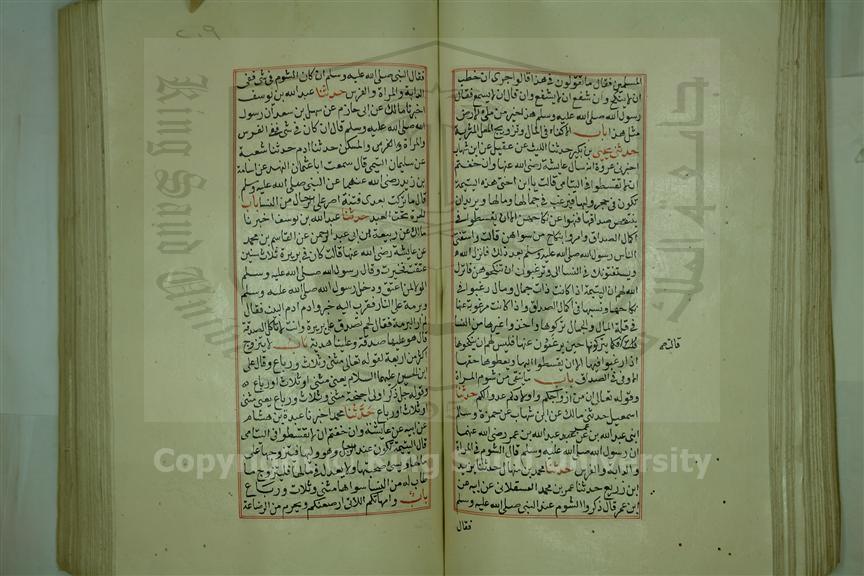 المسلمين فقال ما تقولون في هذا قالوا حري ان خطب
ان لا ينكح وان شفع ان لا يشفع وان قال ان لا يستمع فقال
رسول الله صلى الله عليه وسلم هذا خير من ملء الارض
مثل هذا باب الاكفاء في المال وتزويج المقل المثرية
حدثني يحيى بن بكير حدثنا الليث عن عقيل عن ابن شهاب
اخبرني عروة انه سال عائشة رضي الله عنها وان خفتم
ان لا تقسطوا في اليتامى قالت يا ابن اختي هذه اليتيمة
تكون في حجر وليها فيرغب في جمالها ومالها ويريد ان
ينتقص صداقها فنهوا عن نكاحهن الا ان يقسطوا في
اكمال الصداق وامروا بنكاح من سواهن قالت واستفتى
الناس رسول الله صلى الله عليه وسلم بعد ذلك فانزل الله
ويستفتونك في النساء الى وترغبون ان تنكحوهن فانزل
الله لهم ان اليتيمة اذا كانت ذات جمال ومال رغبوا في
نكاحها ونسبها في اكمال الصداق واذا كانت مرغوبة عنها
في قلة المال والجمال تركوها واخذوا غيرها من النساء
فكما يتركونها حين يرغبون عنها فليس لهم ان ينكحوها
قالت
اذا رغبوا فيها الا ان يقسطوا لها ويعطوها حقها
الاوفى في الصداق باب ما يتقى من شوم المراة
وقوله تعالى ان من ازواجكم واولادكم عدوا لكم حدثنا
اسمعيل حدثني مالك عن ابن شهاب عن حمزة وسالم
ابني عبد الله بن عمر عن عبد الله بن عمر رضي الله عنهما
ان رسول الله صلى الله عليه وسلم قال الشوم في المراة
والدار والفرس حدثنا محمد بن منهال حدثنا يزيد
ابن زريع حدثنا عمر بن محمد العسقلاني عن ابيه عن
ابن عمر قال ذكروا الشوم عند النبي صلى الله عليه وسلم
فقال
فقال النبي صلى الله عليه وسلم ان كان الشوم في شي ففي
الدار والمراة والفرس حدثنا عبد الله بن يوسف
اخبرنا مالك عن ابي حازم عن سهل بن سعد ان رسول
الله صلى الله عليه وسلم قال ان كان في شي ففي الفرس
والمراة والمسكن حدثنا ادم حدثنا شعبة
عن سليمان التيمي قال سمعت ابا عثمان النهدي عن اسامة
بن زيد رضي الله عنهما عن النبي صلى الله عليه وسلم
قال ما تركت بعدي فتنة اضر على الرجال من النساء باب
الحرة تحت العبد حدثنا عبد الله بن يوسف اخبرنا
مالك عن ربيعة بن ابي عبد الرحمن عن القاسم بن محمد
عن عائشة رضي الله عنها قالت كان في بريرة ثلاث سنن
عتقت فخيرت وقال رسول الله صلى الله عليه وسلم
الولاء لمن اعتق ودخل رسول الله صلى الله عليه وسلم
وبرمة على النار فقرب اليه خبز وادم من ادم البيت فقال
لم ار البرمة فقال لحم تصدق على بريرة وانت لا تاكل الصدقة
قال هو عليها صدقة ولنا هدية باب لا يتزوج
اكثر من اربعة لقوله تعالى مثنى وثلاث ورباع وقال علي
بن الحسين عليهما السلام يعني مثنى او ثلاث او رباع
وقوله جل ذكره اولي اجنحة مثنى وثلاث ورباع يعني مثنى
او ثلاث او رباع حدثنا محمد اخبرنا عبدة بن هشام
عن ابيه عن عائشة وان خفتم ان لا تقسطوا في اليتامى
قال اليتيمة تكون عند الرجل وهو وليها فيتزوجها على
مالها ويسيء صحبتها ولا يعدل في مالها فليتزوج ما
طاب له من النساء سواها مثنى وثلاث ورباع
باب وامهاتكم اللاتي ارضعنكم ويحرم من الرضاعة
King Saud University
جامعة الملك سعود
Copyright © King Saud University